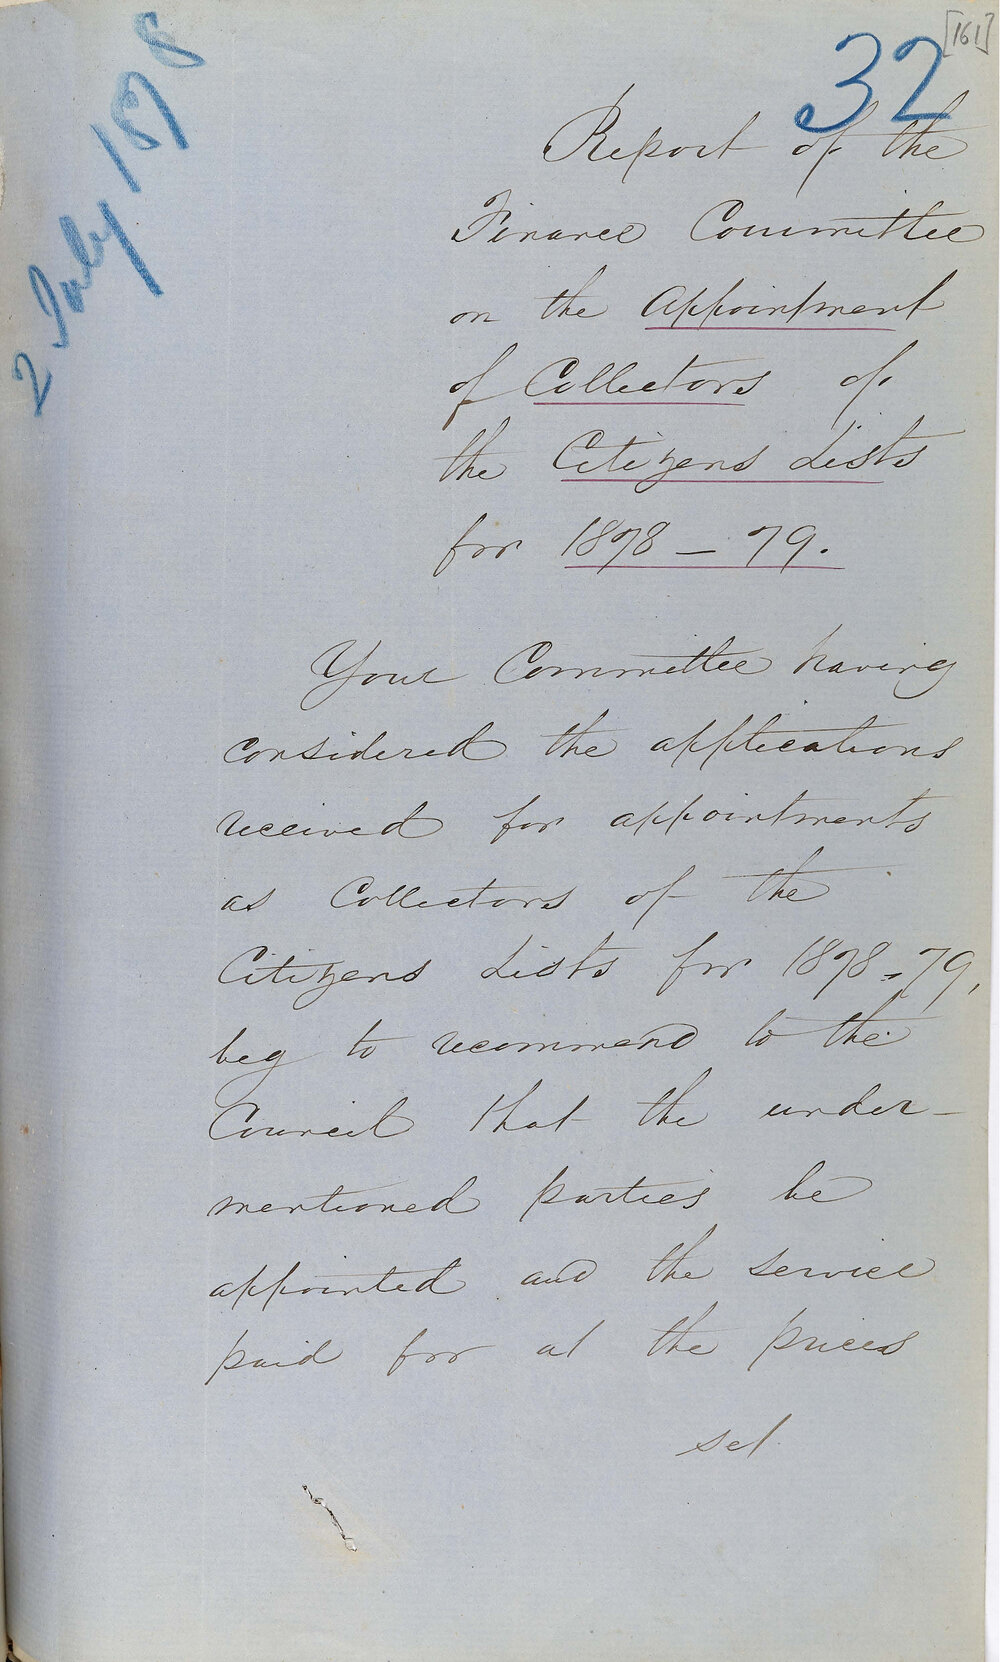 [161]
32
2 July 1878
Report of the
Finance Committee
on the Appointment
of Collectors of
the Citizens Lists
for 1878 – 79.
Your Committee having
considered the applications
received for appointments
as Collectors of the
Citizens Lists for 1878-79,
beg to recommend to the
Council that the under-
mentioned parties be
appointed and the service
paid for at the prices
set